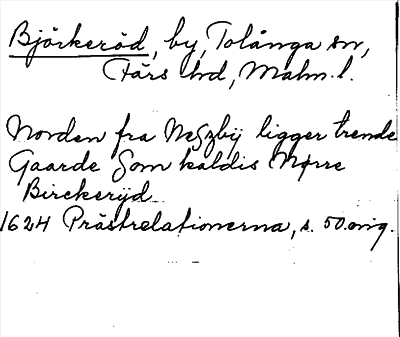 Björkeröd, by, Tolånga sn,
Färs hd, Malm. l.
Norden fra Neszbÿ ligger trende
Gaarde som kaldis Mørre
Birckerÿd
1624 Prästrelationerna, s. 50 orig.